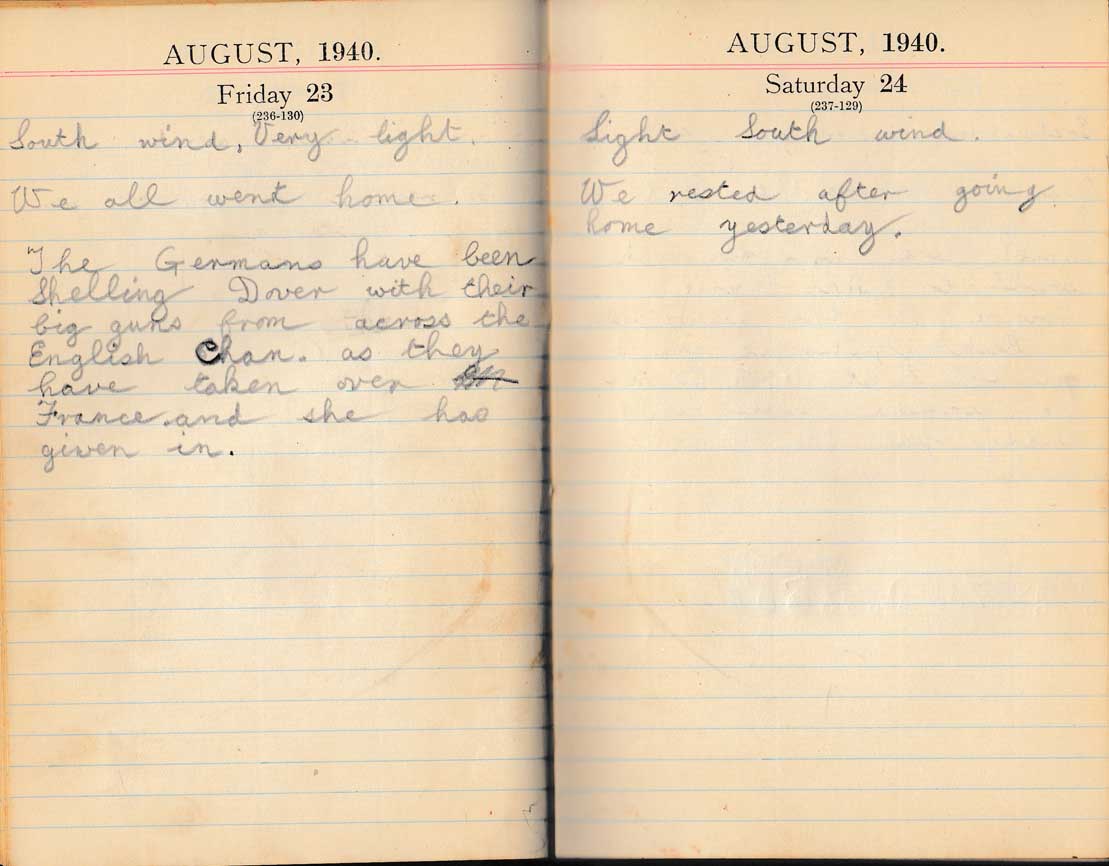 AUGUST, 1940.
Friday 23
(236-130)
South wind, Very light.
We all went home.
The Germans have been
Shelling Dover with their
big guns from across the
English Chan. as they
have taken over
France.and she has
given in.
AUGUST, 1940.
Saturday 24
(237-129)
Light South wind.
We rested after going
home yesterday.